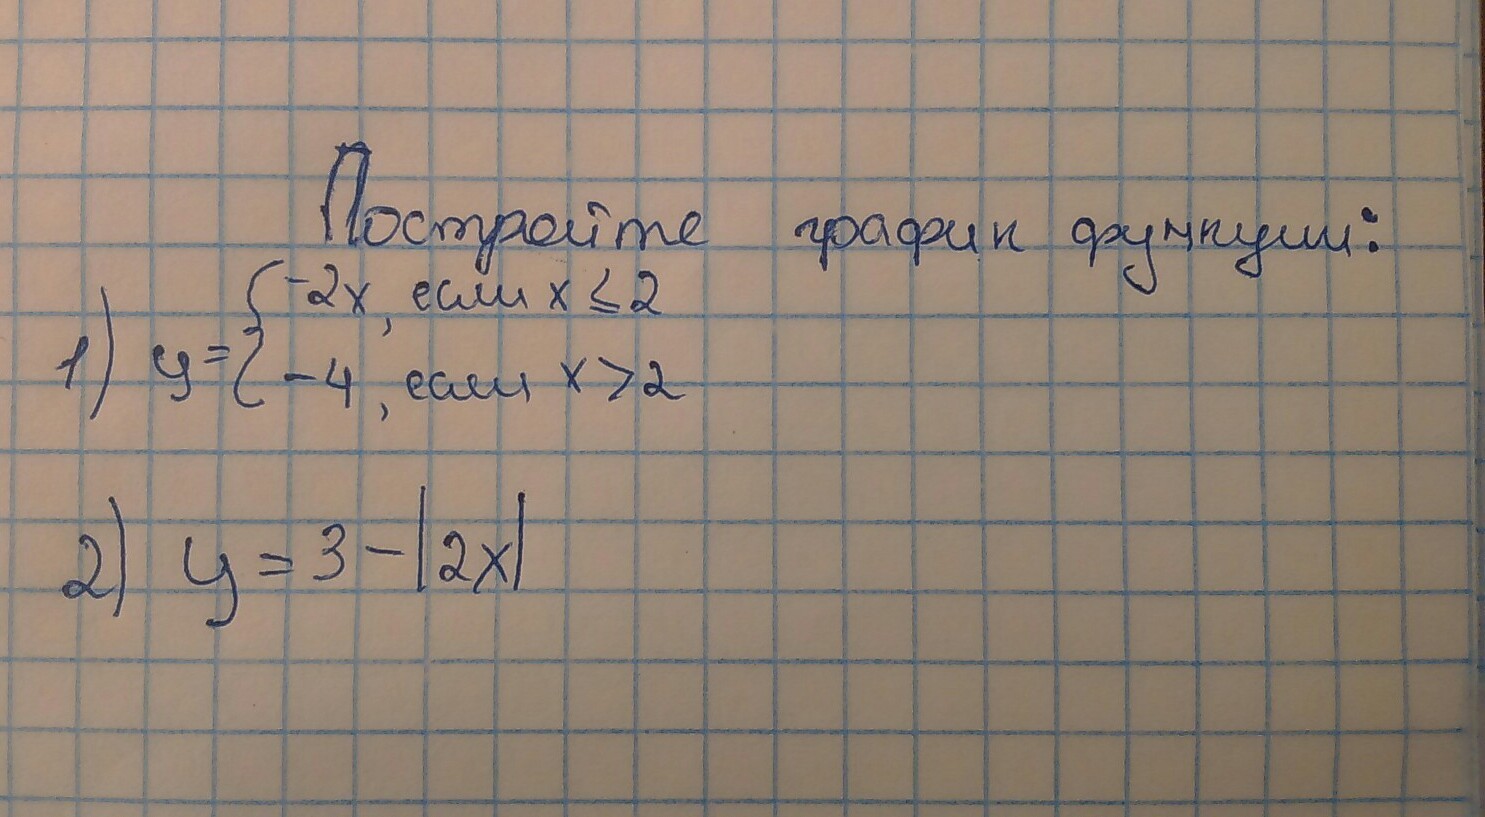 Постройте график функции:
1) y = { -2x, если x ≤ 2
-4, если x > 2
2) y = 3 - |2x|